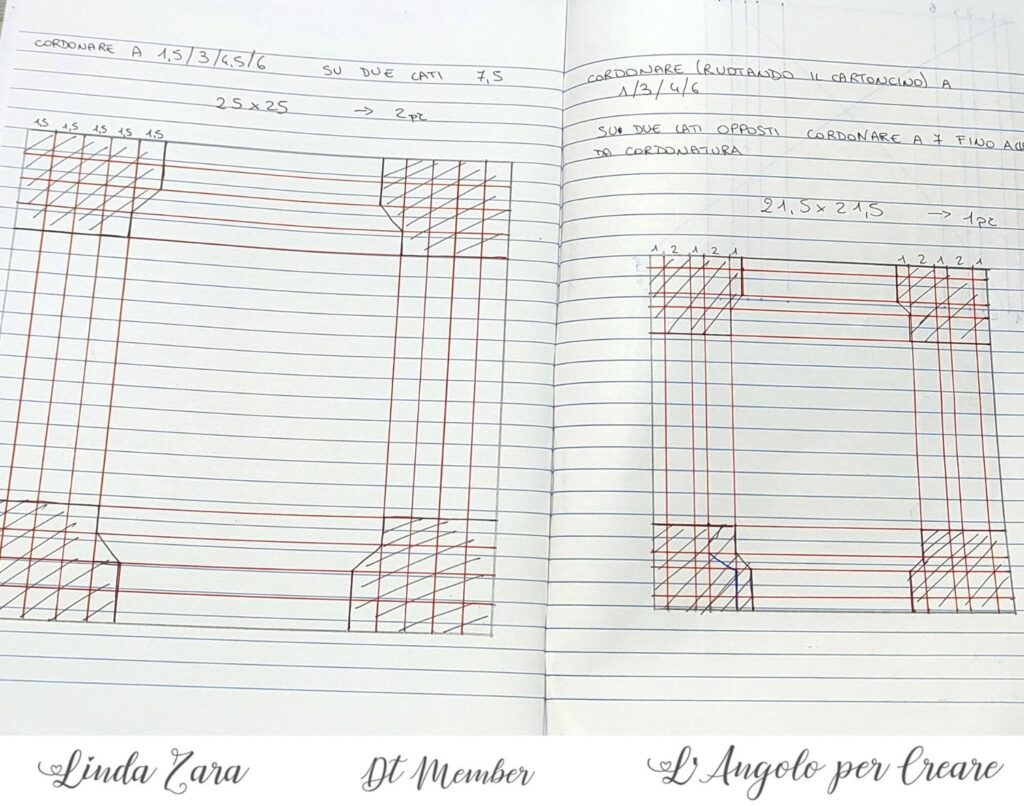 CORDONARE A 1,5/3/4,5/6 SU DUE LATI 7,5
25x25 → 2pz
1,5 1,5 1,5 1,5 1,5
CORDONARE (RUOTANDO IL CARTONCINO) A
1/3/4/6
SU DUE LATI OPPOSTI CORDONARE A 7 FINO
DA CORDONATURA
21,5x21,5 → 1pz
1 2 1 2 1
1 2 1 2 1
Linda Zara
Dt Member
L'Angolo per Creare